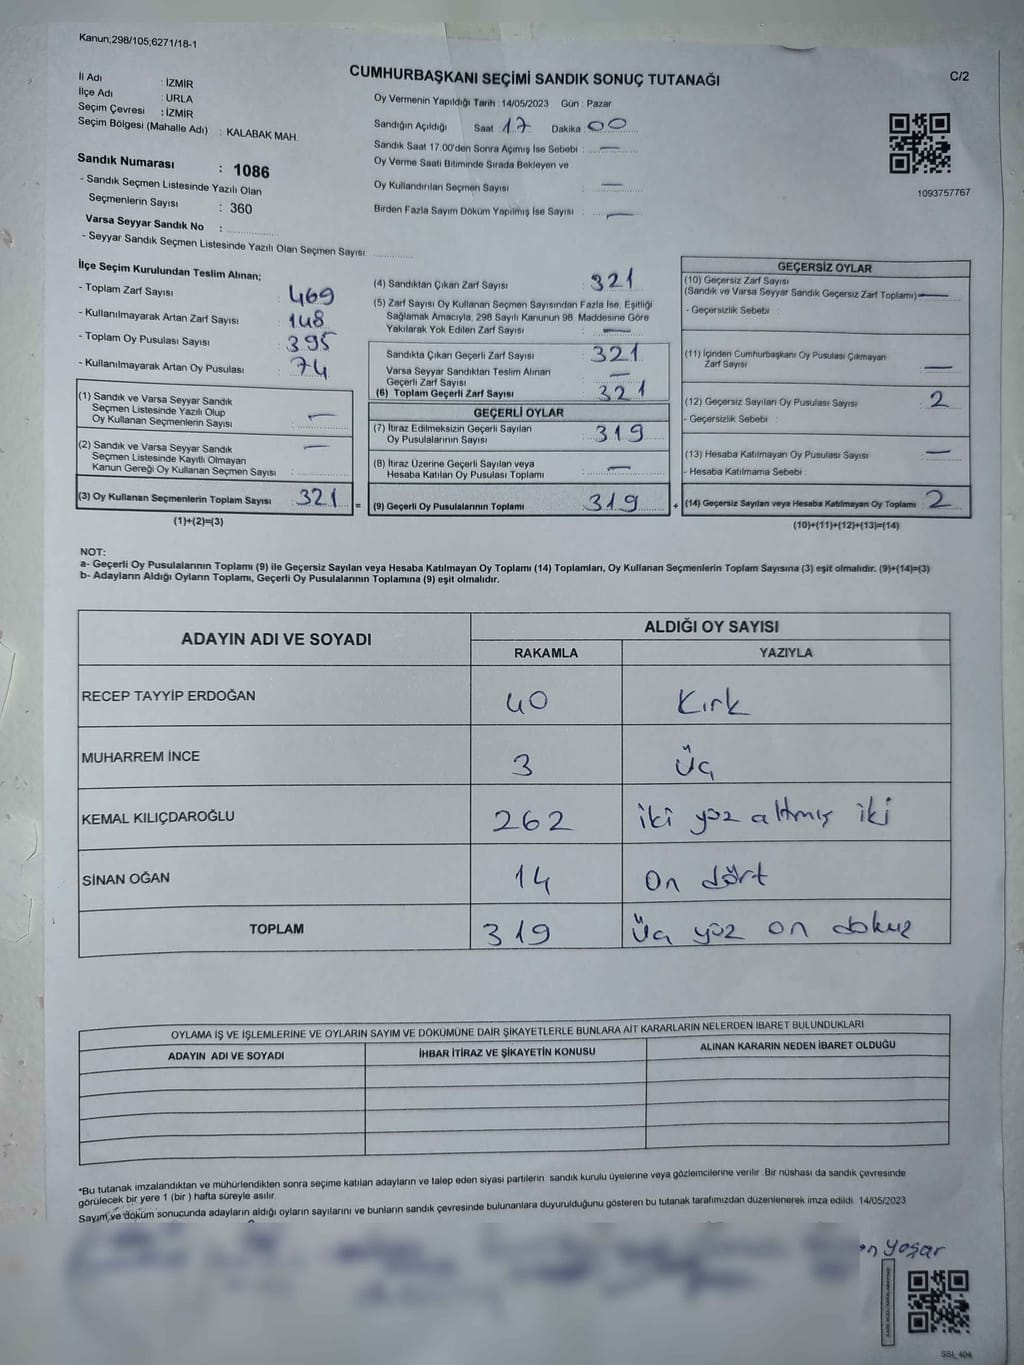 Kanun;298/105;6271/18-1
CUMHURBAŞKANI SEÇİMİ SANDIK SONUÇ TUTANAĞI
C/2
İl Adı : İZMİR
İlçe Adı : URLA
Seçim Çevresi : İZMİR
Seçim Bölgesi (Mahalle Adı) : KALABAK MAH.
Sandık Numarası : 1086
- Sandık Seçmen Listesinde Yazılı Olan
Seçmenlerin Sayısı : 360
Varsa Seyyar Sandık No :
- Seyyar Sandık Seçmen Listesinde Yazılı Olan Seçmen Sayısı:
Oy Vermenin Yapıldığı Tarih : 14/05/2023 Gün : Pazar
Sandığın Açıldığı Saat : 17 Dakika : 00
Sandık Saat 17:00'den Sonra Açmış İse Sebebi : —
Oy Verme Saati Bitiminde Sırada Bekleyen ve
Oy Kullandırılan Seçmen Sayısı : —
Birden Fazla Sayım Döküm Yapılmış İse Sayısı : —
1093757767
İlçe Seçim Kurulundan Teslim Alınan;
- Toplam Zarf Sayısı : 469
- Kullanılmayarak Artan Zarf Sayısı : 148
- Toplam Oy Pusulası Sayısı : 395
- Kullanılmayarak Artan Oy Pusulası : 74
(1) Sandık ve Varsa Seyyar Sandık
Seçmen Listesinde Yazılı Olup
Oy Kullanan Seçmenlerin Sayısı : —
(2) Sandık ve Varsa Seyyar Sandık
Seçmen Listesinde Kayıtlı Olmayan
Kanun Gereği Oy Kullanan Seçmen Sayısı : —
(3) Oy Kullanan Seçmenlerin Toplam Sayısı : 321
(1)+(2)=(3)
(4) Sandıktan Çıkan Zarf Sayısı : 321
(5) Zarf Sayısı Oy Kullanan Seçmen Sayısından Fazla İse, Eşitliği
Sağlamak Amacıyla, 298 Sayılı Kanunun 98. Maddesine Göre
Yakılarak Yok Edilen Zarf Sayısı : —
Sandıkta Çıkan Geçerli Zarf Sayısı : 321
Varsa Seyyar Sandıktan Teslim Alınan
Geçerli Zarf Sayısı : —
(6) Toplam Geçerli Zarf Sayısı : 321
GEÇERLİ OYLAR
(7) İtiraz Edilmeksizin Geçerli Sayılan
Oy Pusulalarının Sayısı : 319
(8) İtiraz Üzerine Geçerli Sayılan veya
Hesaba Katılan Oy Pusulası Toplamı : —
= (9) Geçerli Oy Pusulalarının Toplamı : 319
GEÇERSİZ OYLAR
(10) Geçersiz Zarf Sayısı
(Sandık ve Varsa Seyyar Sandık Geçersiz Zarf Toplamı) : —
- Geçersizlik Sebebi :
(11) İçinden Cumhurbaşkanı Oy Pusulası Çıkmayan
Zarf Sayısı : —
(12) Geçersiz Sayılan Oy Pusulası Sayısı : 2
- Geçersizlik Sebebi :
(13) Hesaba Katılmayan Oy Pusulası Sayısı : —
- Hesaba Katılmama Sebebi :
+ (14) Geçersiz Sayılan veya Hesaba Katılmayan Oy Toplamı : 2
(10)+(11)+(12)+(13)=(14)
NOT:
a- Geçerli Oy Pusulalarının Toplamı (9) ile Geçersiz Sayılan veya Hesaba Katılmayan Oy Toplamı (14) Toplamları, Oy Kullanan Seçmenlerin Toplam Sayısına (3) eşit olmalıdır. (9)+(14)=(3)
b- Adayların Aldığı Oyların Toplamı, Geçerli Oy Pusulalarının Toplamına (9) eşit olmalıdır.
ADAYIN ADI VE SOYADI
ALDIĞI OY SAYISI
RAKAMLA YAZIYLA
RECEP TAYYİP ERDOĞAN 40 Kırk
MUHARREM İNCE 3 Üç
KEMAL KILIÇDAROĞLU 262 iki yüz altmış iki
SİNAN OĞAN 14 On dört
TOPLAM 319 Üç yüz on dokuz
OYLAMA İŞ VE İŞLEMLERİNE VE OYLARIN SAYIM VE DÖKÜMÜNE DAİR ŞİKAYETLERLE BUNLARA AİT KARARLARIN NELERDEN İBARET BULUNDUKLARI
ADAYIN ADI VE SOYADI İHBAR İTİRAZ VE ŞİKAYETİN KONUSU ALINAN KARARIN NEDEN İBARET OLDUĞU
*Bu tutanak imzalandıktan ve mühürlendikten sonra seçime katılan adayların ve talep eden siyasi partilerin sandık kurulu üyelerine veya gözlemcilerine verilir. Bir nüshası da sandık çevresinde
görülecek bir yere 1 (bir ) hafta süreyle asılır.
Sayım ve döküm sonucunda adayların aldığı oyların sayılarını ve bunların sandık çevresinde bulunanlara duyurulduğunu gösteren bu tutanak tarafımızdan düzenlenerek imza edildi. 14/05/2023
Yaşar
SSI_404